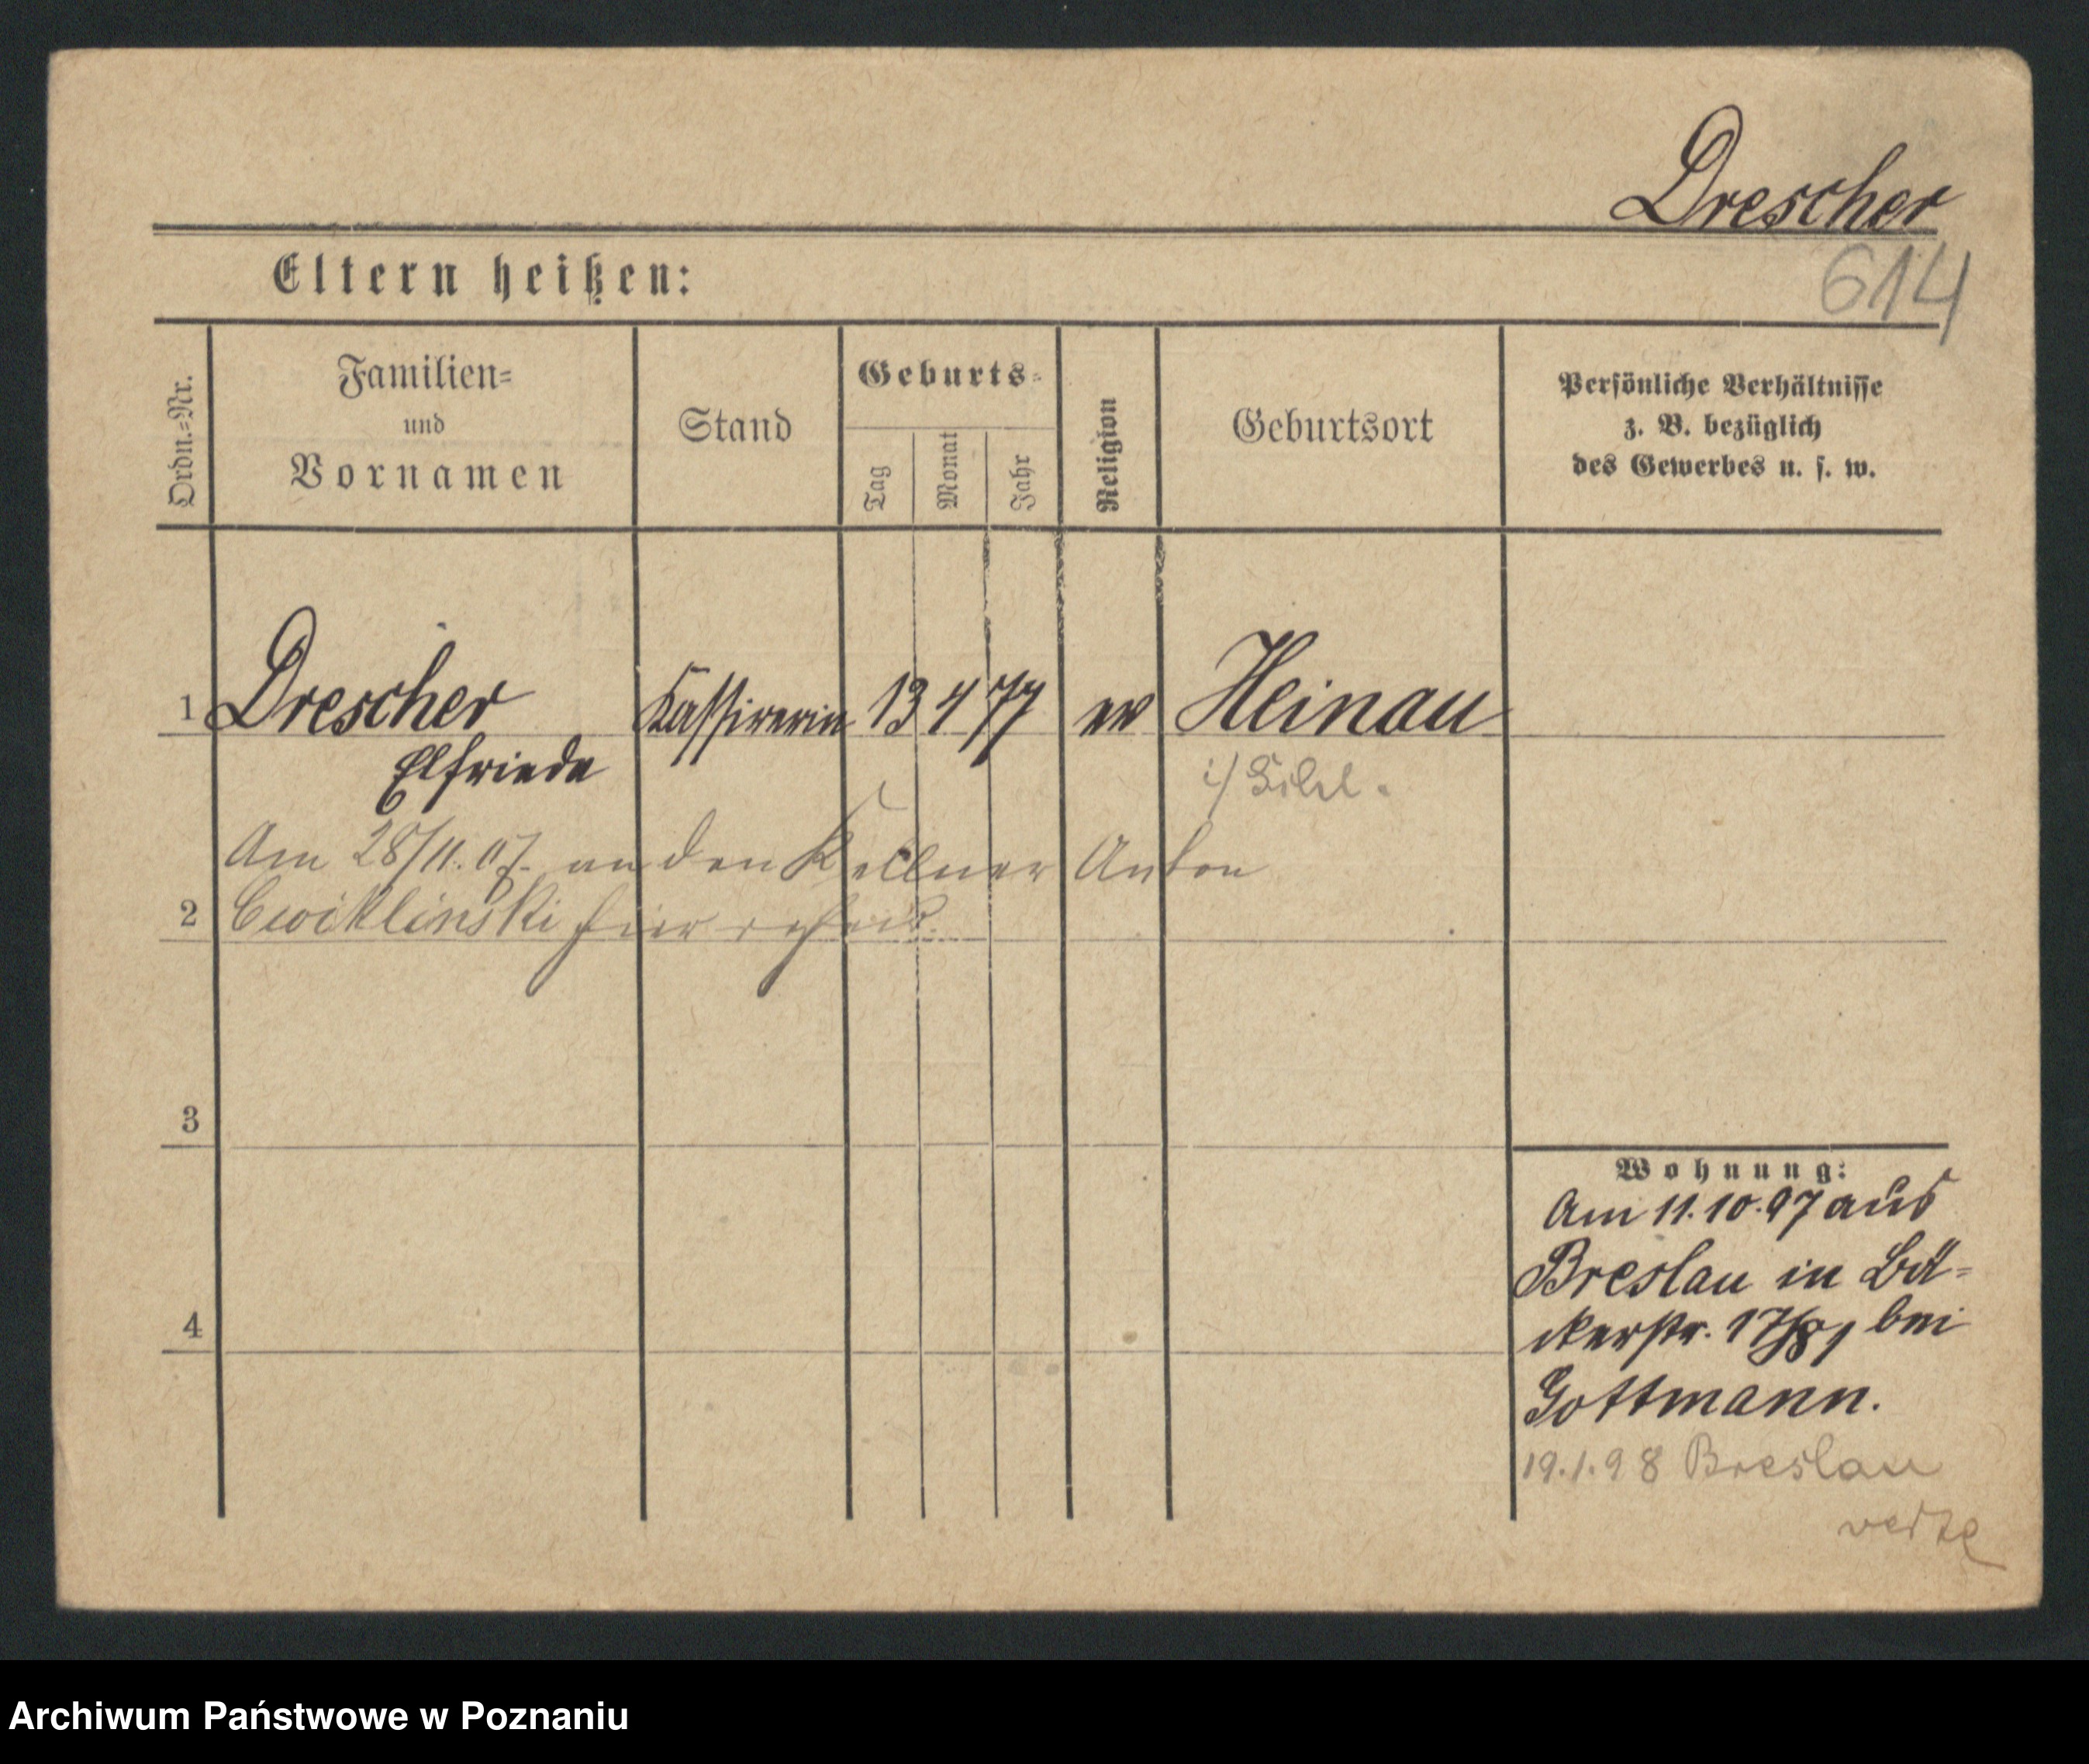 Drescher
614
Eltern heißen:
Ordn.=Nr.
Familien=
und
Vornamen
Stand
Geburts=
Tag
Monat
Jahr
Religion
Geburtsort
Persönliche Verhältnisse
z. B. bezüglich
des Gewerbes u. s. w.
1 Drescher Kassirerin 13 4 77 ev Heinau
Elfriede
i/ Schl.
Am 28/11.07. an den Kellner Anton
2 Cwiklinski hier
3
4
Wohnung:
Am 11.10.97 aus
Breslau in Bä=
ckerstr. bei
Gottmann.
19.1.98 Breslau
Archiwum Państwowe w Poznaniu